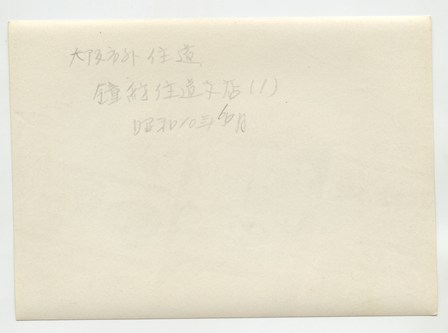 大阪市外住道
鐘紡住道支店(1)
昭和10年 月